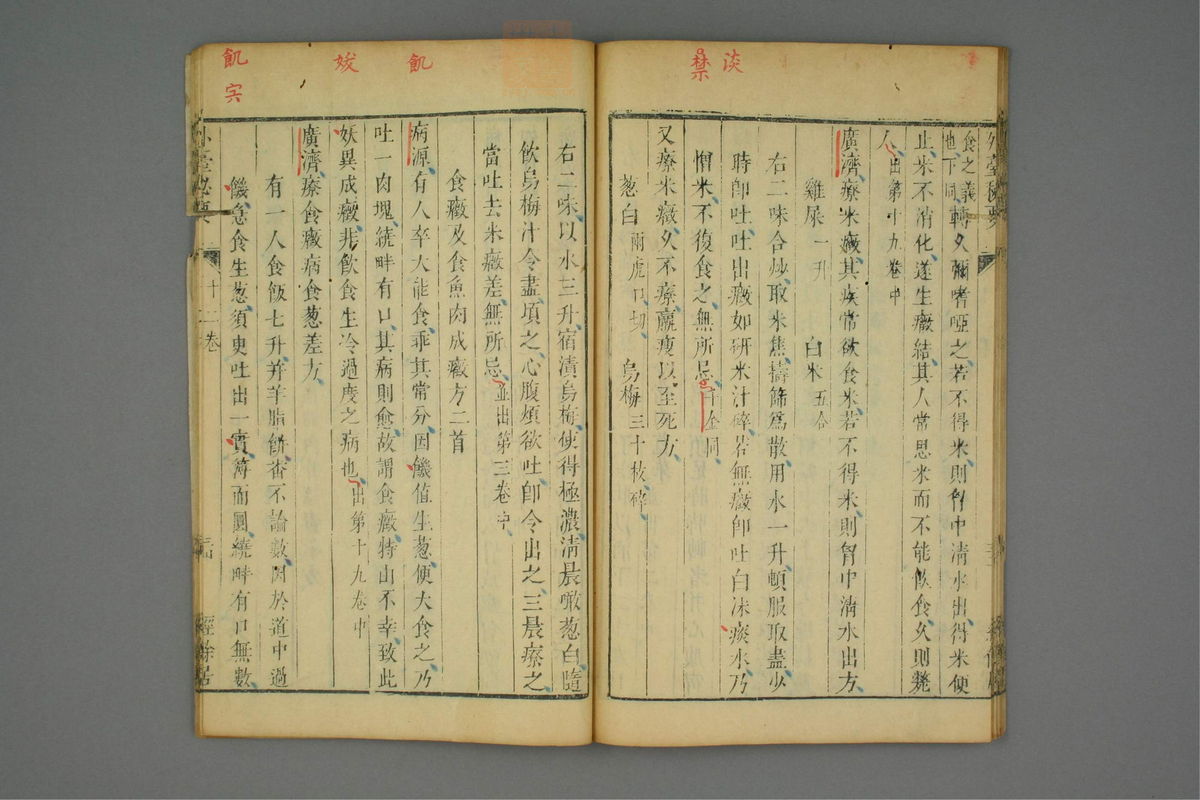 淡
禁
食之義
也下同
轉久彌嗜啞之若不得米則胷中清水出得米便
止米不消化遂生癥結其人常思米而不能飲食久則斃
人出第十九卷中
廣濟療米癥其疾常欲食米若不得米則胷中清水出方
雞屎一升 白米五合
右二味合炒取米焦擣篩爲散用水一升頓服取盡少
時卽吐吐出癥如研米汁碎若無癥卽吐白沫痰水乃
憎米不復食之無所忌千金同
又療米癥久不療羸瘦以至死方
葱白兩虎口切 烏梅三十枚碎
飢
妭
飢
右二味以水三升宿漬烏梅使得極濃清晨噉葱白隨
飲烏梅汁令盡頃之心腹煩欲吐卽令出之三晨療之
當吐去米癥差無所忌並出第三卷中
食癥及食魚肉成癥方二首
病源有人卒大能食乖其常分因饑值生葱便大食之乃
吐一肉塊繞畔有口其病則愈故謂食癥特由不幸致此
妖異成癥非飲食生冷過度之病也出第十九卷中
廣濟療食癥病食葱差方
有一人食飯七升并羊脂餅番不論數因於道中過
饑急食生葱須臾吐出一實簿而圓繞畔有口無數
外臺秘要 十二卷
經餘居